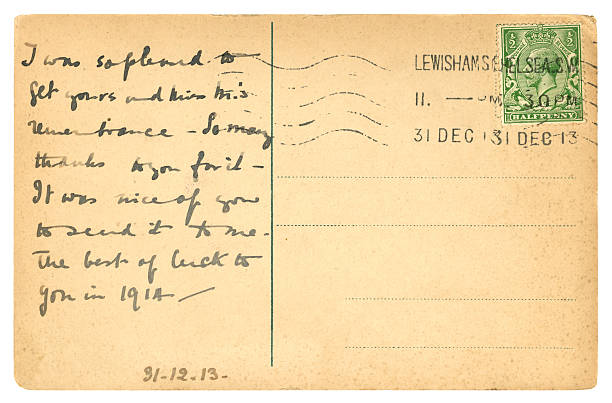 I was so pleased to
get yours and Miss
remembrance – So many
thanks to you for it –
It was nice of you
to send it to me.
The best of luck to
you in 1914 –
31-12-13-
LEWISHAM S CHELSEA. S.W.
11. — PM 3.0 PM
31 DEC 13 31 DEC 13
½ ½
HALFPENNY